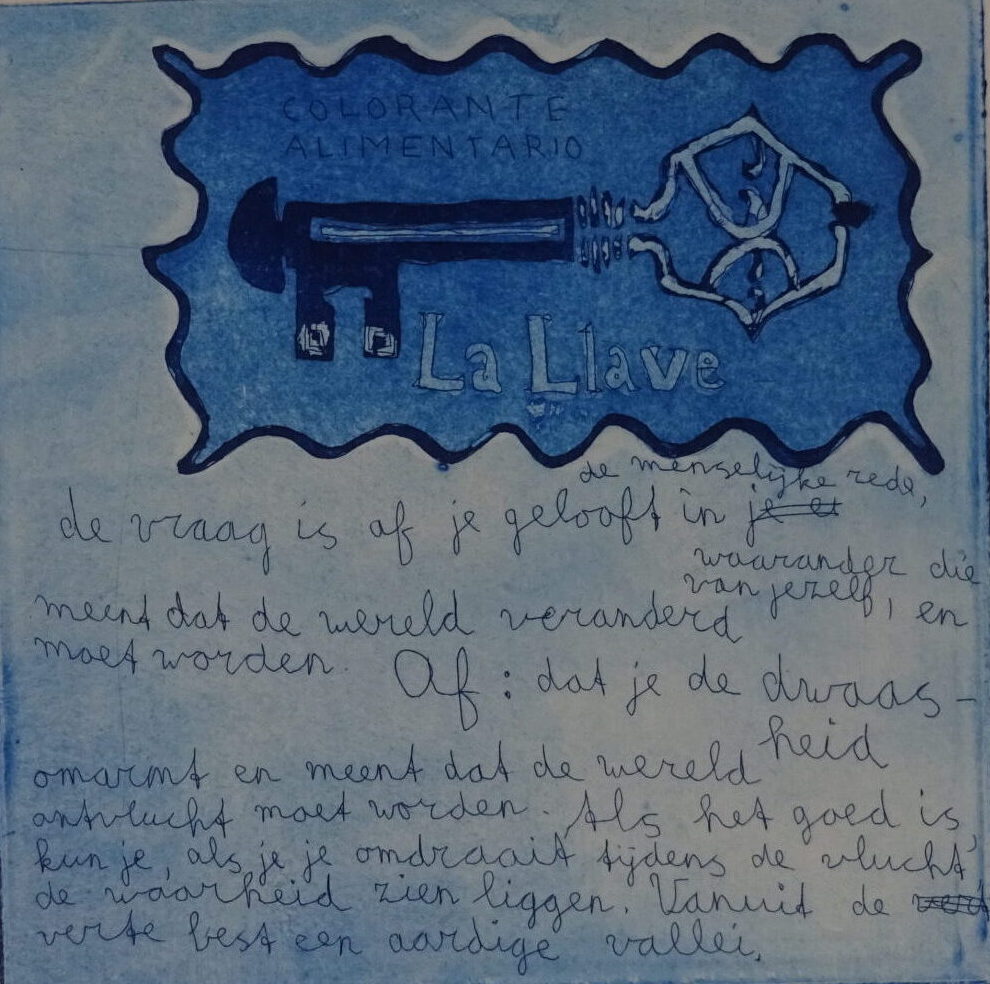 COLORANTE
ALIMENTARIO
La Llave
de menselijke rede,
de vraag is of je gelooft in je et
waaronder die
van jezelf, en
meent dat de wereld veranderd
moet worden.
Of: dat je de dwaas-
heid
omarmt en meent dat de wereld
ontvlucht moet worden. Als het goed is,
kun je, als je je omdraait tijdens de vlucht,
de waarheid zien liggen. Vanuit de
verte best een aardige vallei.